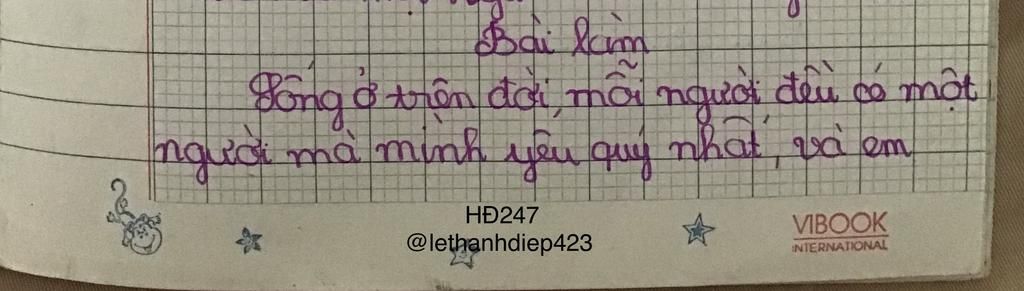 Bài làm
Sống ở trên đời, mỗi người đều có một
người mà mình yêu quý nhất, và em
HĐ247
@lethanhdiep423
VIBOOK
INTERNATIONAL